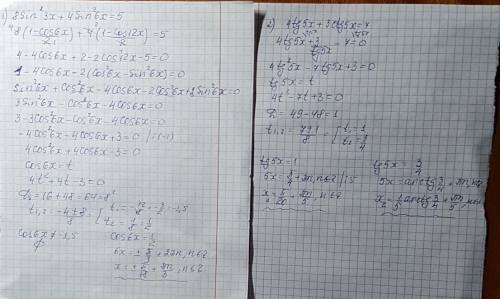 1) 8sin²3x + 4sin²6x = 5
8(1-cos6x)/2 + 4(1-cos12x)/2 = 5
4-4cos6x+2-2cos12x-5=0
1-4cos6x-2(cos²6x-sin²6x)=0
sin²6x+cos²6x-4cos6x-2cos²6x+2sin²6x=0
3sin²6x-cos²6x-4cos6x=0
3-3cos²6x-cos²6x-4cos6x=0
-4cos²6x-4cos6x+3=0 |·(-1)
4cos²6x+4cos6x-3=0
cos6x=t
4t²+4t-3=0
D=16+48=64=8²
t₁,₂ = (-4±8)/8 = [ t₁=-12/8=-3/2=-1,5
t₂=4/8=1/2
cos6x≠-1,5 cos6x=1/2
∅ 6x=±π/3+2πn, n∈Z
x=±π/18+πn/3, n∈Z
2) 4tg5x+3ctg5x=7
4tg5x+3/tg5x-7=0
4tg²5x-7tg5x+3=0
tg5x=t
4t²-7t+3=0
D=49-48=1
t₁,₂=(7±1)/8=[ t₁=1
t₂=3/4
tg5x=1 tg5x=3/4
5x=π/4+πn, n∈Z |:5 5x=arctg3/4+πn, n∈Z
x=π/20+πn/5, n∈Z x=1/5arctg3/4+πn/5, n∈Z